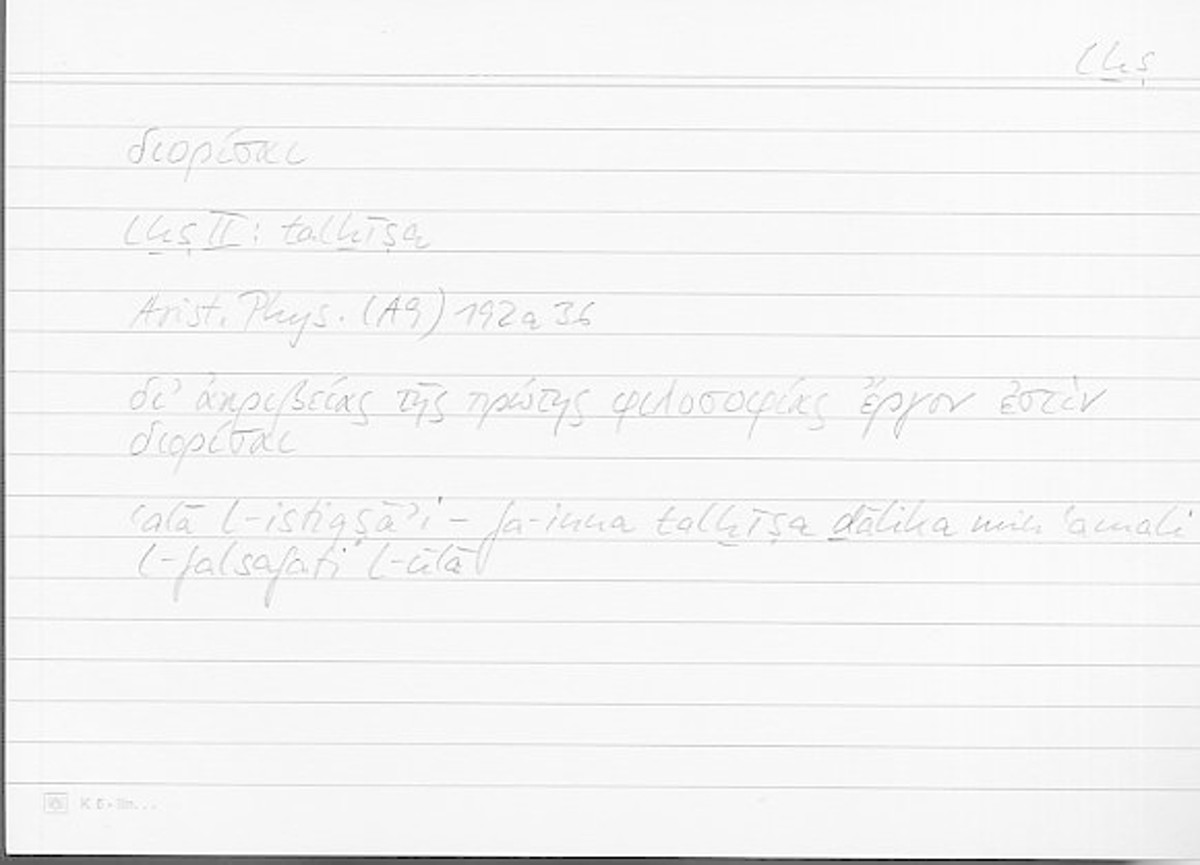 lḫṣ
διορίσαι
lḫṣ II: talḫīṣa
Arist. Phys. (A9) 192a36
δι' ἀκριβείας τῆς πρώτης φιλοσοφίας ἔργον ἐστὶν
διορίσαι
ʿalā l-istiqṣāʾi – fa-inna talḫīṣa ḏālika min ʿamali
l-falsafati l-ūlā